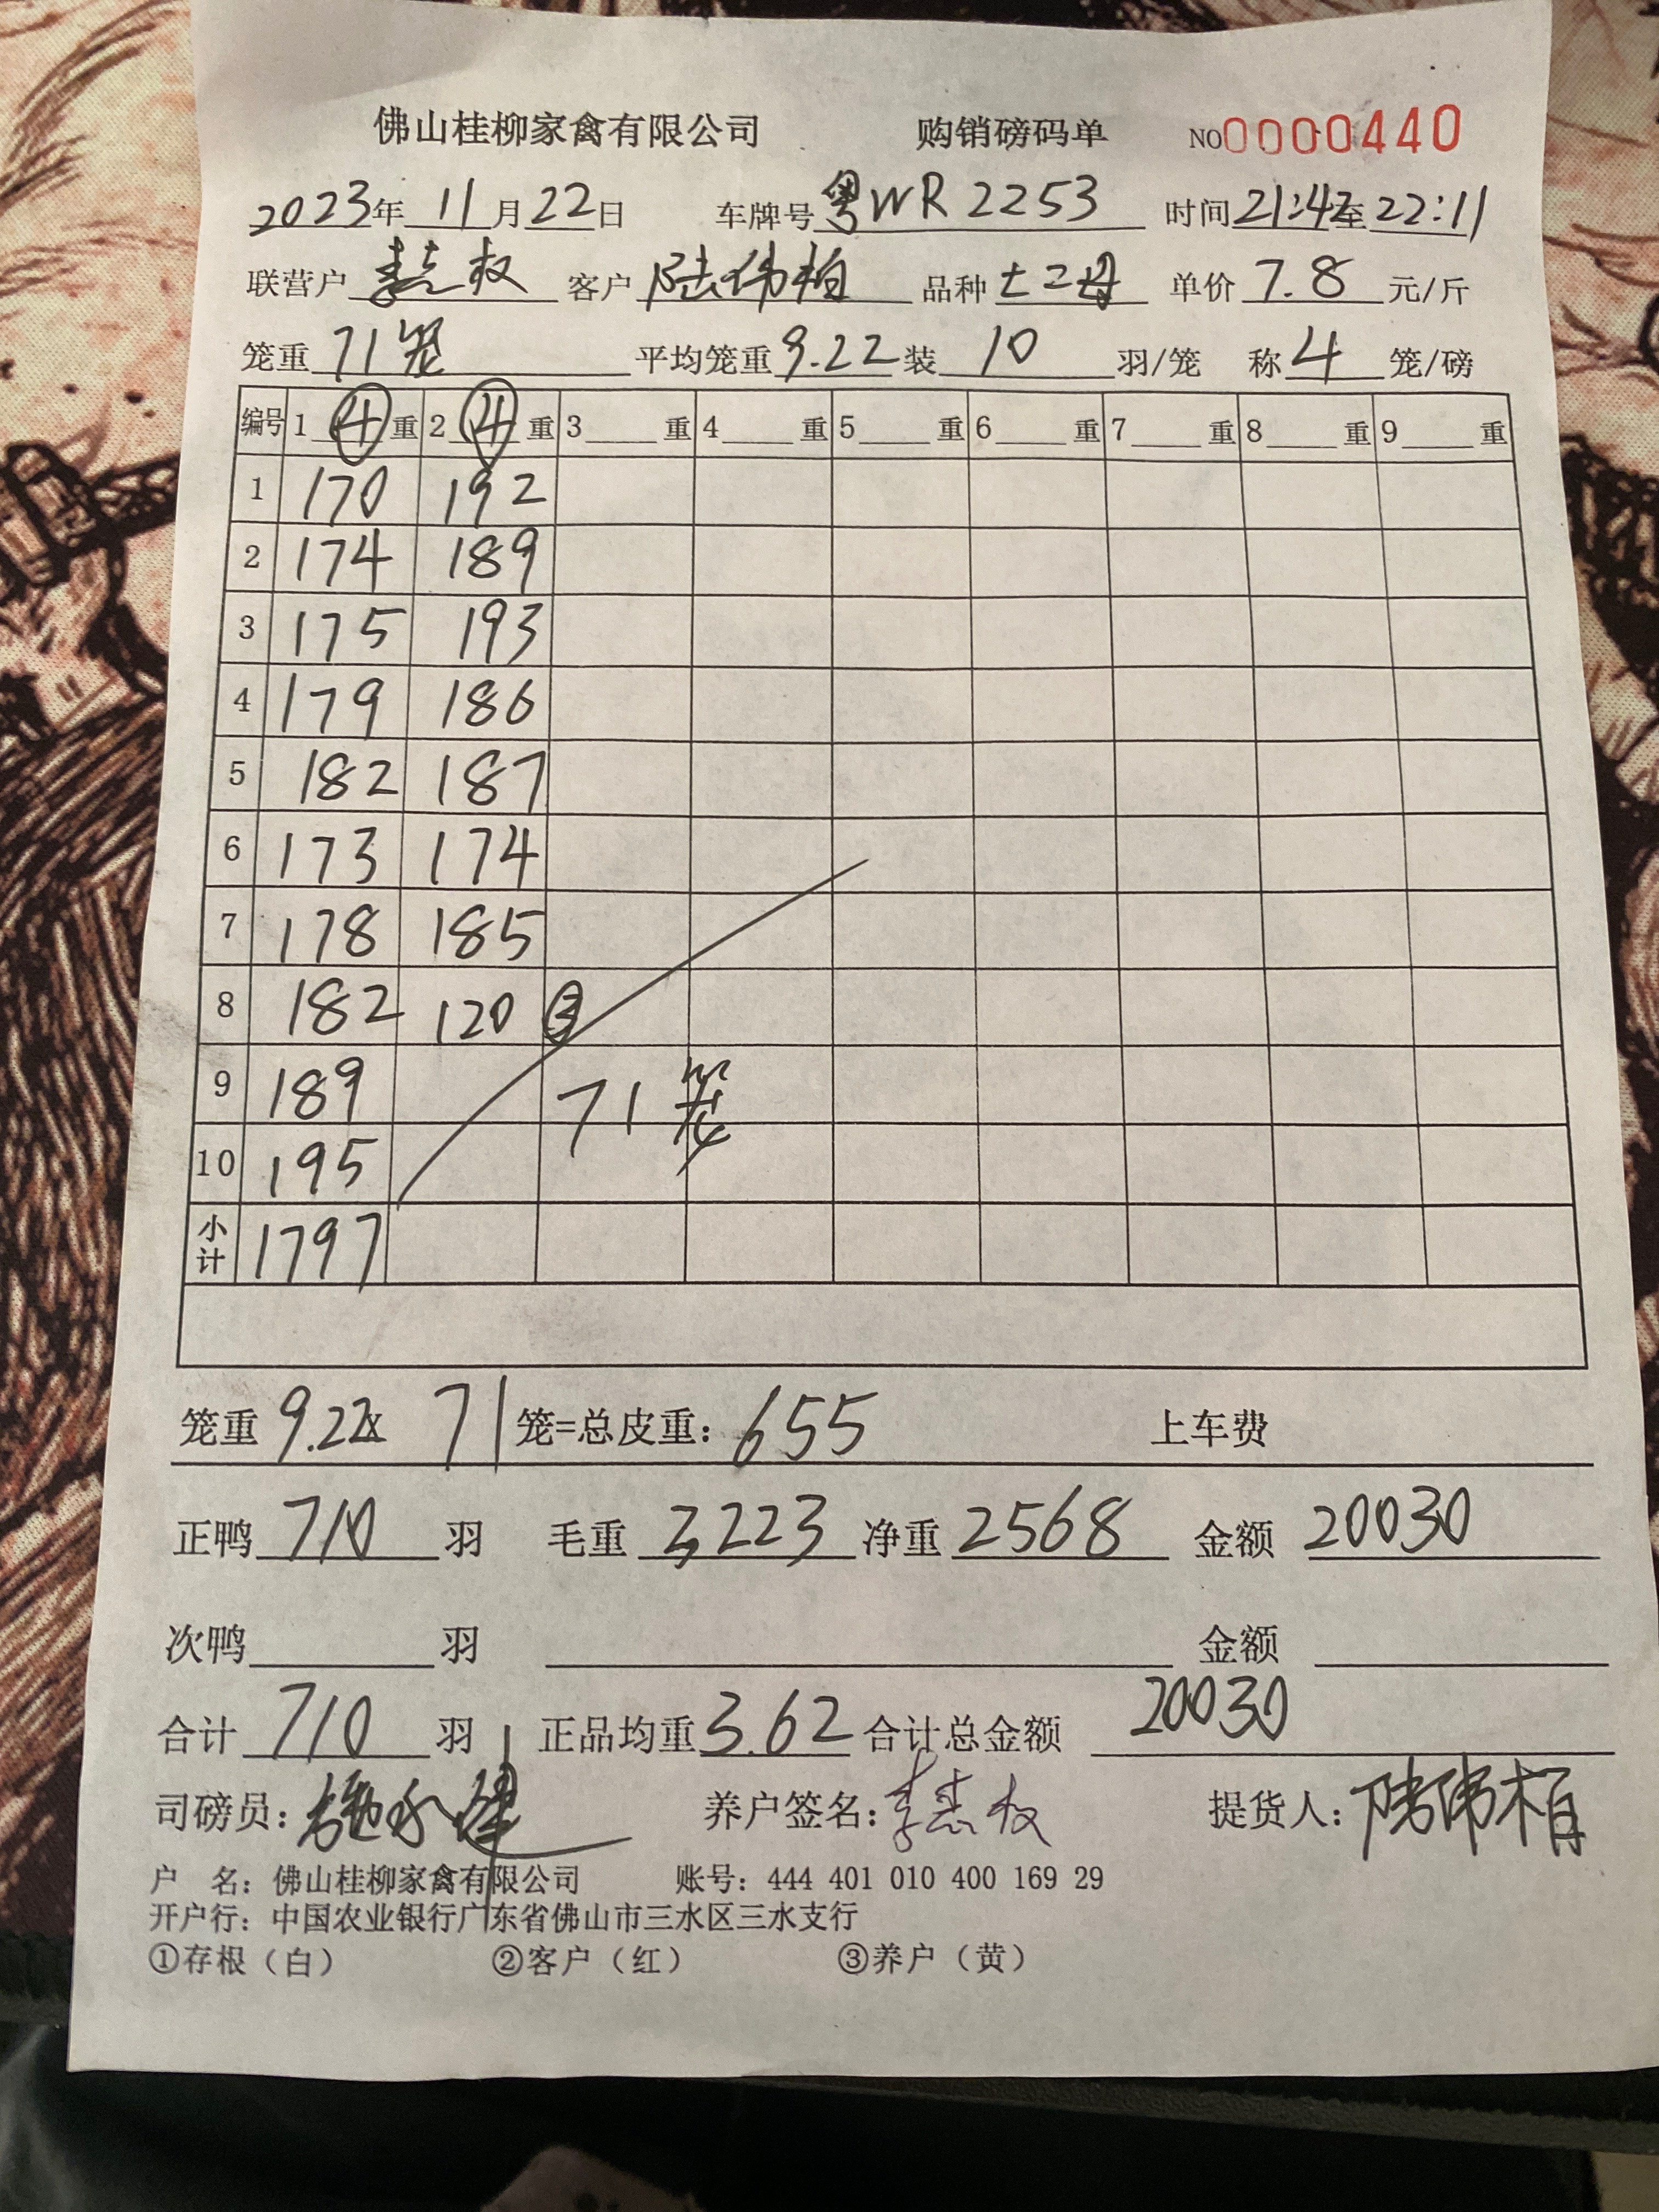 佛山桂柳家禽有限公司 购销磅码单 NO0000440
2023年 11月22日 车牌号粤WR 2253 时间21:42至22:11
联营户 李志权 客户 陆伟柏 品种 土二母 单价 7.8 元/斤
笼重 71笼 平均笼重9.22装 10 羽/笼 称4 笼/磅
编号 1 4 重 2 4 重 3 重 4 重 5 重 6 重 7 重 8 重 9 重
1 170 192
2 174 189
3 175 193
4 179 186
5 182 187
6 173 174
7 178 185
8 182 120 ③
9 189 71笼
10 195
小计 1797
笼重 9.22x 71笼=总皮重: 655 上车费
正鸭 710 羽 毛重 3223 净重 2568 金额 20030
次鸭 羽 金额
合计 710 羽 正品均重3.62 合计总金额 20030
司磅员: 养户签名:李志权 提货人:陆伟柏
户 名: 佛山桂柳家禽有限公司 账号: 444 401 010 400 169 29
开户行: 中国农业银行广东省佛山市三水区三水支行
①存根(白) ②客户(红) ③养户(黄)